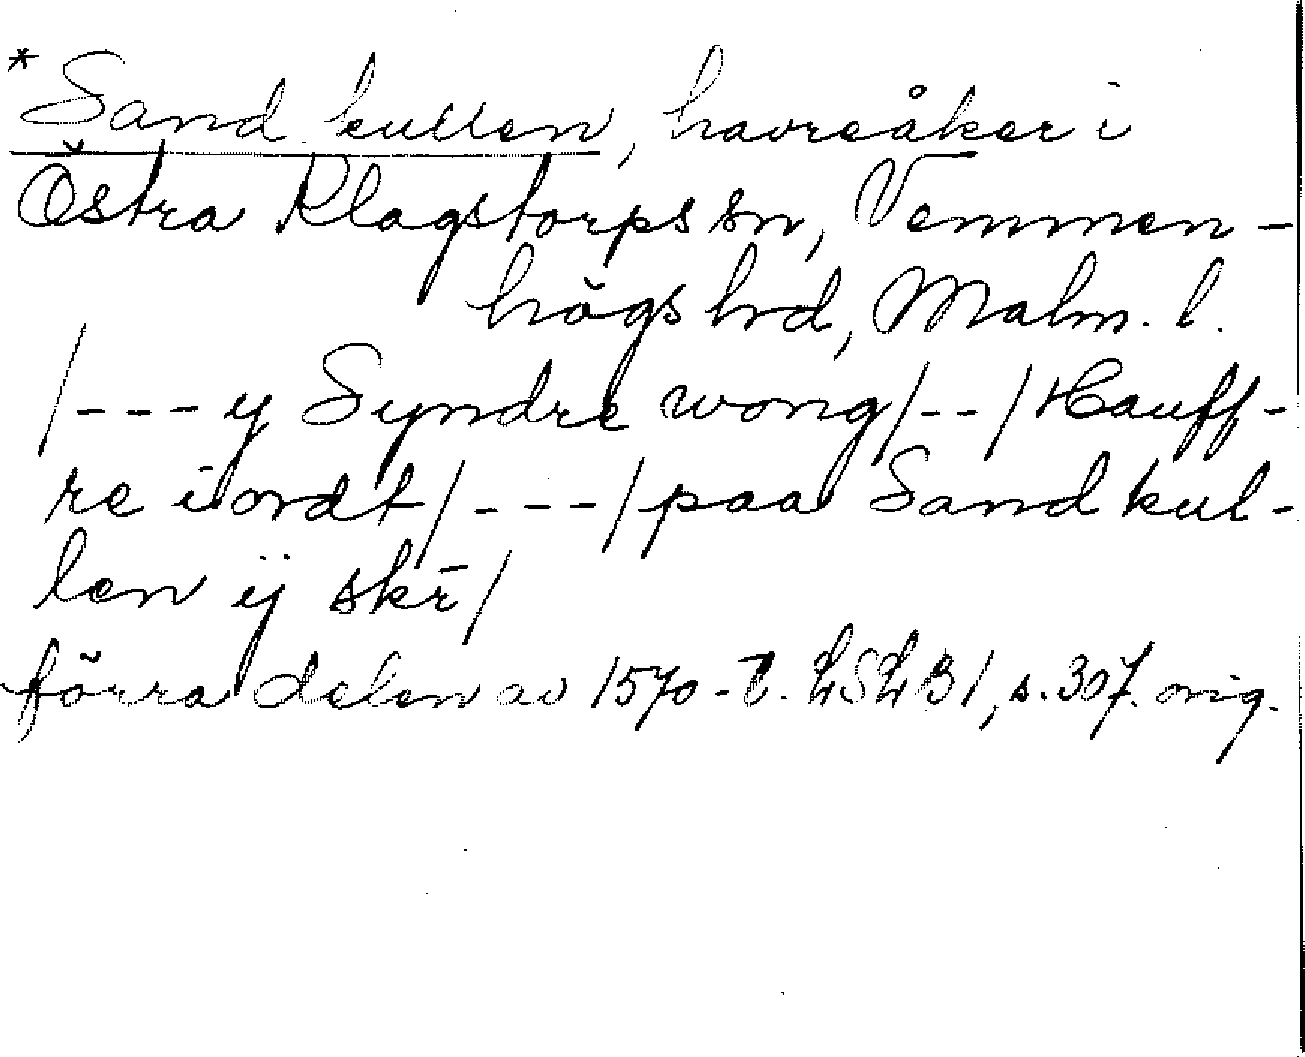 *Sand kullen, havreåker i
Östra Klagstorps sn, Vemmen-
högs hd, Malm. l.
/---y Syndre wong/--/Hauff-
re iordt/---/paa Sand kul-
len ij skr̄/
förra delen av 1570-t. LSLB1, s. 307. orig.